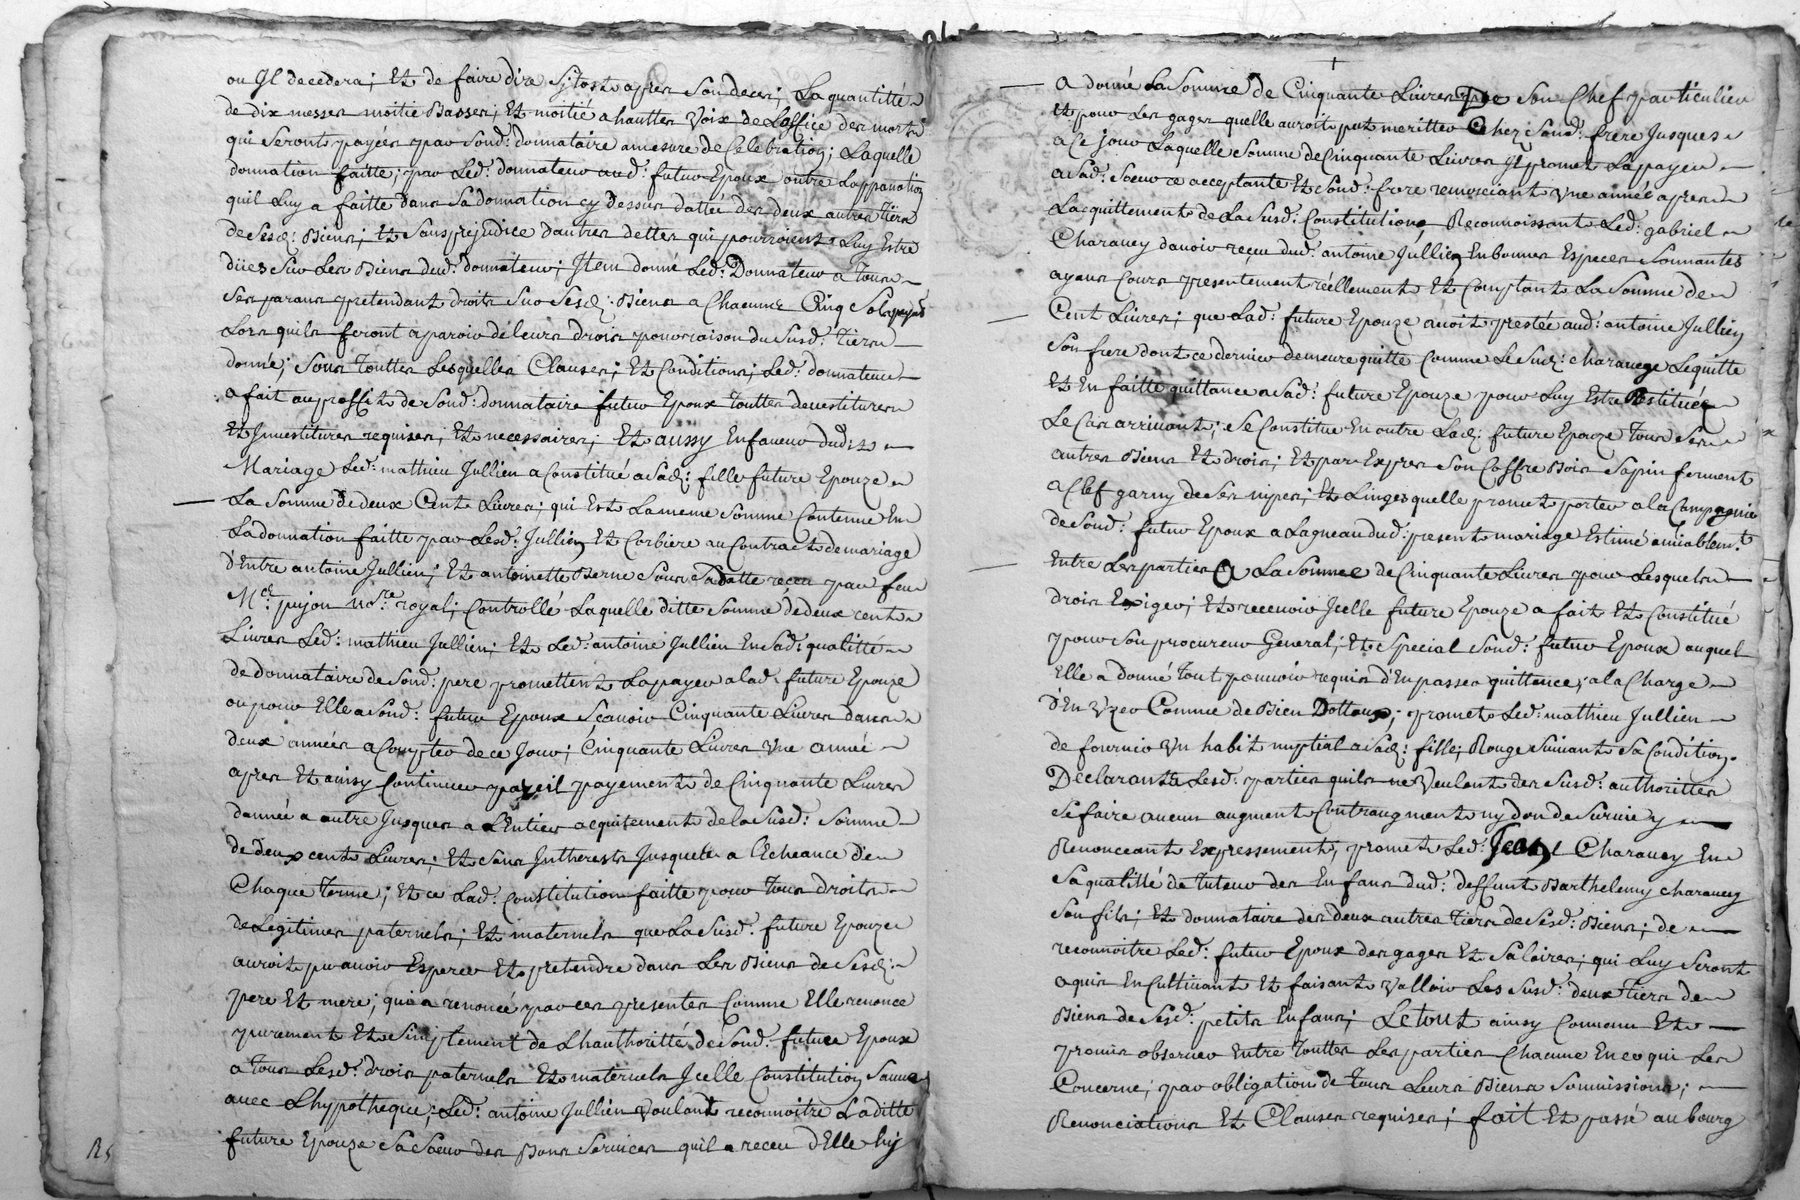 ou Il decedera; Et de faire dire Sitost apres Son deces; La quantitté
de dix messes moitie Basses; Et moitié a hauttes Voix de Loffice des morts
qui Seront payées par Sond: donnataire amesure de Celebration; Laquelle
donnation faitte; par Led: donnateur aud: futur Epoux outre Lappanation
quil Luy a faitte dans Sa donnation cy dessus dattée des deux autres Tiers
de Sesd: Biens; Et Sans prejudice dautres dettes qui pourroient Luy Estre
düies Sur Les Biens dud: donnateur; Item donné Led: Donnateur a Tous
Ses parans pretendant droits Sur Sesd: Biens a Chacune Cinq Sols payés
Lors quils feront aparoir de leurs drois pour raison du Susd: Tiers
donné; Sous Touttes Lesquelles Clauses; Et Conditions; Led: donnateur
a fait au proffit de Sond: donnataire futur Epoux Touttes devestitures
Et Investitures requises; Et necessaires; Et aussy En faveur dudit
Mariage Led: mathieu Jullien a Constitué a Sad: fille future Epouze
La Somme de deux Cent Livres; qui Est La meme Somme Contenue En
La donnation faitte par Lesd: Jullien Et Corbiere au Contract de mariage
d'Entre antoine Jullien; Et antoinette Berne Sous Sa datte receu par feu
Mre: pujon nore: royal; Controllé Laquelle ditte Somme de deux cent
Livres Led: mathieu Jullien; Et Led: antoine Jullien En Sad: qualitté
de donnataire de Sond: pere promettent La payer a lad: future Epouze
ou pour Elle a Sond: futur Epoux Sçavoir Cinquante Livres dans
deux années a Compter de ce Jour; Cinquante Livres Une année
apres Et ainsy Continuer pareil payement de Cinquante Livres
dannée a autre Jusques a L'Entier acquitement de la Susd: Somme
de deux cent Livres; Et Sans Inthereste Jusques a l'Echeance de
Chaque Terme; Et ce Lad: Constitution faitte pour Tous droits
de Legitimes paternels; Et maternels que La Susd: future Epouze
auroit pu avoir Esperer Et pretendre dans Les Biens de Sesd:
pere Et mere; qui a renoncé par ces presentes Comme Elle renonce
purement Et Simplement de L'hauthoritté de Sond: futur Epoux
a Tous Lesd: drois paternels Et maternels Icelle Constitution Sauve
avec L'hypotheque; Led: antoine Jullien Voulant reconnoitre Laditte
future Epouze Sa Soeur des Bons Services quil a receu d'Elle luy
a donné La Somme de Cinquante Livres De Son Chef particulier
Et pour Les gages quelle auroit put meritter Chez Sond: frere Jusques
a Ce jour Laquelle Somme de Cinquante Livres Il promet La payer
a Sad: Soeur ce acceptante Et Sond: frere remerciant Une année apres
Lacquittement de La Susd: Constitution Reconnoissant Led: gabriel
Charavey davoir receu dud: antoine Jullien En bonnes Especes Sonnantes
ayans Cours presentement réellement Et Comptant La Somme de
Cent Livres; que Lad: future Epouze avoit prestée aud: antoine Jullien
Son frere dont ce dernier demeure quitte Comme Le Sud: charavey Le quitte
Et En faitte quittance a Sad: future Epouze pour Luy Estre Restituée
Le Cas arrivant; Se Constitue En outre Lad: future Epouze Tous Ses
autres Biens Et drois; Et par Expres Son Coffre Bois Sapin fermant
a Clef garny de Ses nipes; Et Linges quelle promet porter a la Compagnie
de Sond: futur Epoux a Lagneau dud: present mariage Estimé amiablemt:
Entre Les parties A La Somme de Cinquante Livres pour Lesquels
drois Exiger; Et recevoir Icelle future Epouze a fait Et Constitué
pour Son procureur General; Et Special Sond: futur Epoux auquel
Elle a donné Tout pouvoir requis d'En passer quittance; a la Charge
d'En Uzer Comme de Bien Dottaux; promet Led: mathieu Jullien
de fournir Un habit nuptial a Sad: fille; Rouge Suivant Sa Condition.
Declarants Lesd: parties quils ne Veulent des Susd: authorittes
Se faire aucun augment Contraugment ny don de Survie
Renonceant Expressement; promet Led: Jean Charavey En
Sa qualitté de Tuteur des Enfans dud: deffunt Barthelemy charavey
Son fils; Et donnataire des deux autres Tiers de Sesd: Biens; de
reconnoitre Led: futur Epoux des gages Et Salaires; qui Luy Seront
aquis En Cultivant Et faisant Valloir Les Susd: deux Tiers de
Biens de Sesd: petits Enfans; Le tout ainsy Convenu Et
promis observer Entre Touttes Les parties Chacune En ce qui Les
Concerne; par obligation de Tous Leurs Biens Soumissions;
Renonciations Et Clauses requises; fait Et passé au bourg